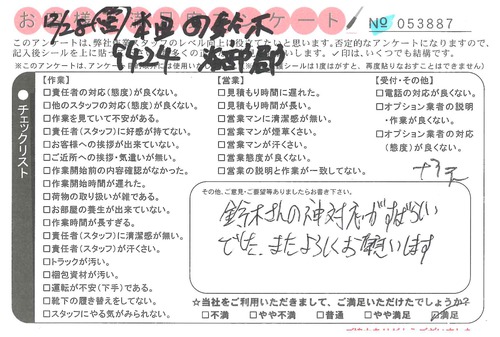 お客様 ンケート
№ 053887
このアンケートは、弊社
記入後シールを上に貼っ
チェックリスト
【作業】
□責任者の対応(態度)が良くない。
□他のスタッフの対応(態度)が良くない。
□作業を見ていて不安がある。
□責任者(スタッフ)に好感が持てない。
□お客様への挨拶が出来ていない。
□ご近所への挨拶・気遣いが無い。
□作業開始前の内容確認がなかった。
□作業開始時間が遅れた。
□荷物の取り扱いが雑である。
□お部屋の養生が出来ていない。
□作業時間が長すぎる。
□責任者(スタッフ)に清潔感が無い。
□責任者(スタッフ)が汗くさい。
□トラックが汚い。
□梱包資材が汚い。
□運転が不安(下手)である。
□靴下の履き替えをしてない。
□スタッフにやる気がみられない。
【営業】
□見積もり時間に遅れた。
□見積もり時間が長い。
□営業マンに清潔感が無い。
□営業マンが煙草くさい。
□営業マンが汗くさい。
□営業態度が良くない。
□営業の説明と作業が一致してない。
【受付・その他】
□電話の対応が良くない。
□オプション業者の説明
・作業が良くない。
□オプション業者の対応
(態度)が良くない。
その他、ご意見・ご要望等ありましたらお書き下さい。
鈴木さんの神対応がすばらしい
でした。またよろしくお願いします
☆当社をご利用いただきまして、ご満足いただけたでしょうか?
□不満 □やや不満 □普通 □やや満足 □満足